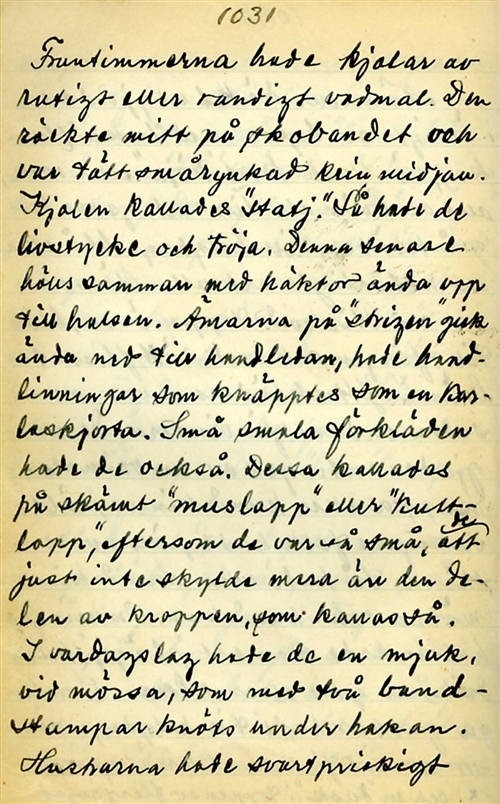 1031
Fruntimmerna hade kjolar av
rutigt eller randigt vadmal. Den
räckte mitt på skobandet och
var tätt smårynkad kring midjan.
Kjolen kallades "statj". Så hade de
livstycke och tröja. Denna senare
hölls samman med häktor ända upp
till halsen. Ärmarna på "strizen" gick
ända ned till handledan, hade hand-
linningar som knäpptes som en kar-
laskjorta. Små smala förkläden
hade de också. Dessa kallades
på skämt "muslapp" eller "kutt-
lapp", eftersom de var så små, att de
just inte skylde mera än den de-
len av kroppen, som kallas så.
I vardagslag hade de en mjuk,
vid mössa, som med två band-
stumpar knöts under hakan.
Hustrurna hade svartprickigt